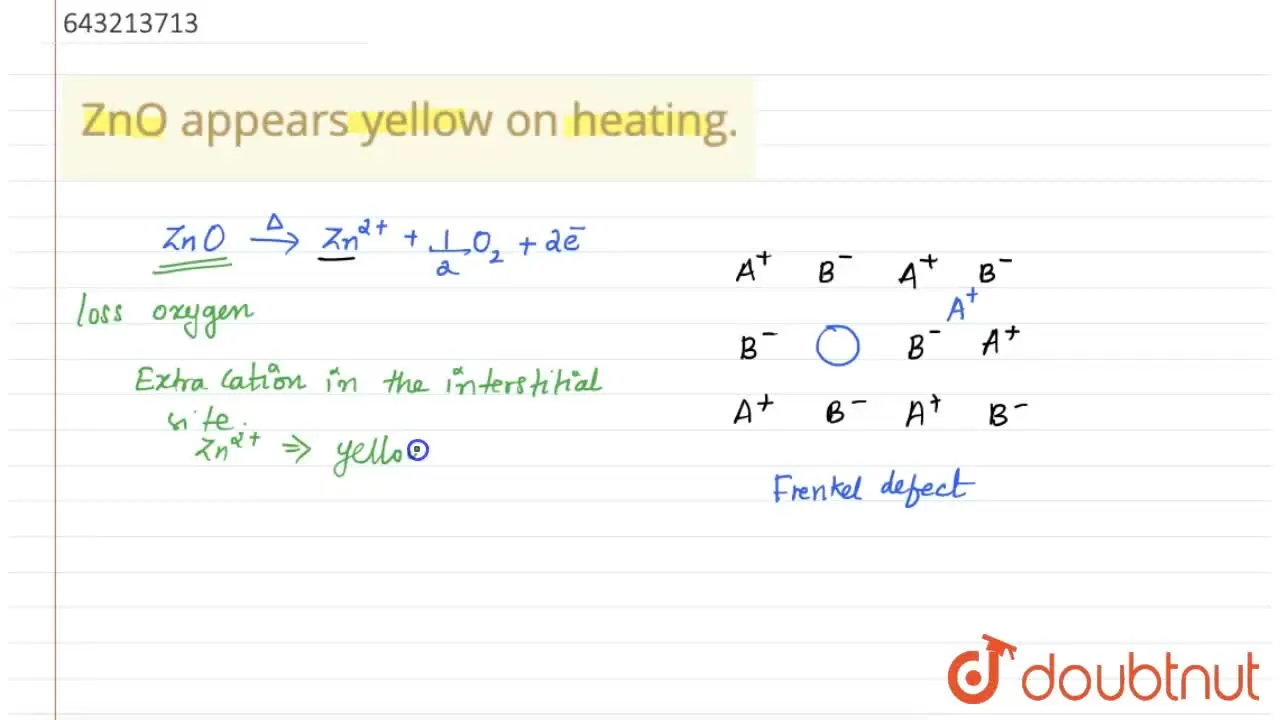 643213713
ZnO appears yellow on heating.
ZnO →Δ Zn²⁺ + 1/2 O₂ + 2e⁻
loss oxygen
Extra cation in the interstitial
site.
Zn²⁺ ⇒ yello
A⁺ B⁻ A⁺ B⁻
A⁺
B⁻ B⁻ A⁺
A⁺ B⁻ A⁺ B⁻
Frenkel defect
doubtnut